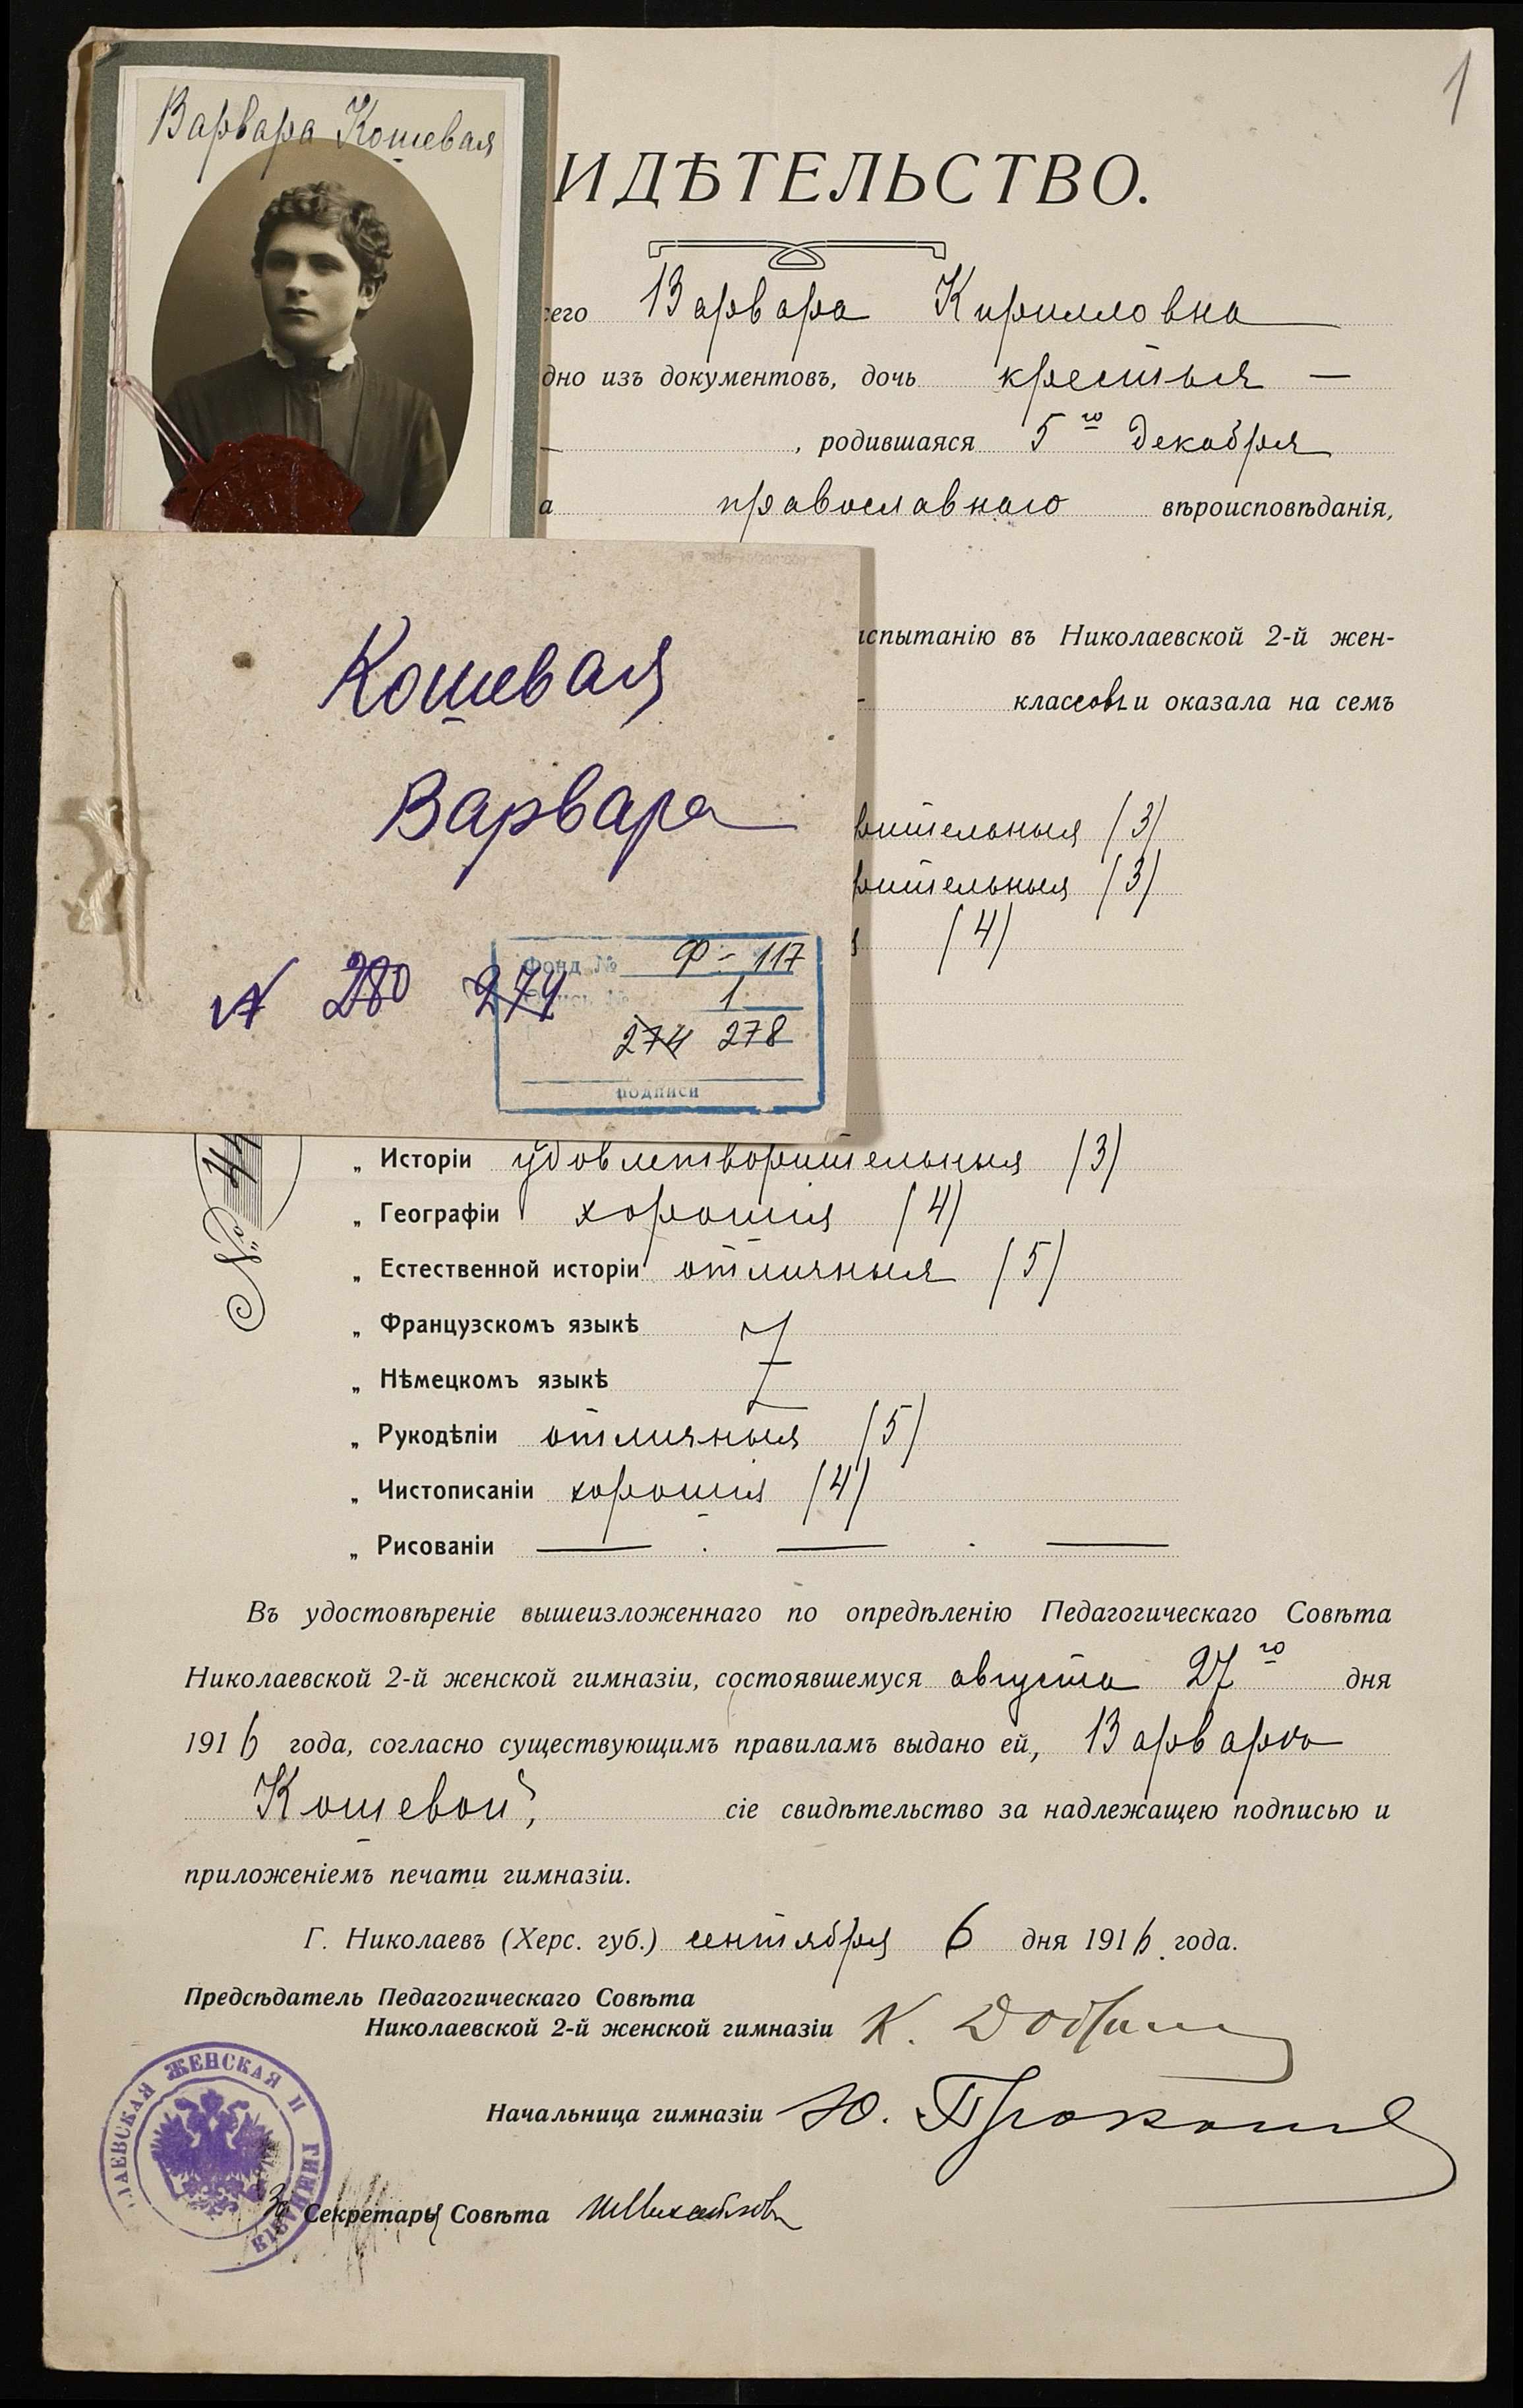 1
Варвара Кошевая
ИДѢТЕЛЬСТВО.
сего Варвара Кирилловна
дно изъ документовъ, дочь крестья —
— , родившаяся 5го Декабря
а православнаго вѣроисповѣданія,
испытанію въ Николаевской 2-й жен-
классовъ и оказала на семъ
Кошевая
Варвара
вительныя (3)
рительныя (3)
я (4)
№ 280 274
Фонд № Ф - 117
Опись № 1
274 278
подписи
№
„ Исторіи удовлетворительныя (3)
„ Географіи хорошія (4)
„ Естественной исторіи отличныя (5)
„ Французскомъ языкѣ
„ Нѣмецкомъ языкѣ
„ Рукодѣліи отличныя (5)
„ Чистописаніи хорошія (4)
„ Рисованіи — . — . —
Въ удостовѣреніе вышеизложеннаго по опредѣленію Педагогическаго Совѣта
Николаевской 2-й женской гимназіи, состоявшемуся августа 27го дня
1916 года, согласно существующимъ правиламъ выдано ей, Варварѣ
Кошевой, сіе свидѣтельство за надлежащею подписью и
приложеніемъ печати гимназіи.
Г. Николаевъ (Херс. губ.) сентября 6 дня 1916 года.
Предсѣдатель Педагогическаго Совѣта
Николаевской 2-й женской гимназіи К.
Начальница гимназіи Ю.
За Секретаря Совѣта
ЛАЕВСКАЯ ЖЕНСКАЯ II ГИМНАЗІЯ